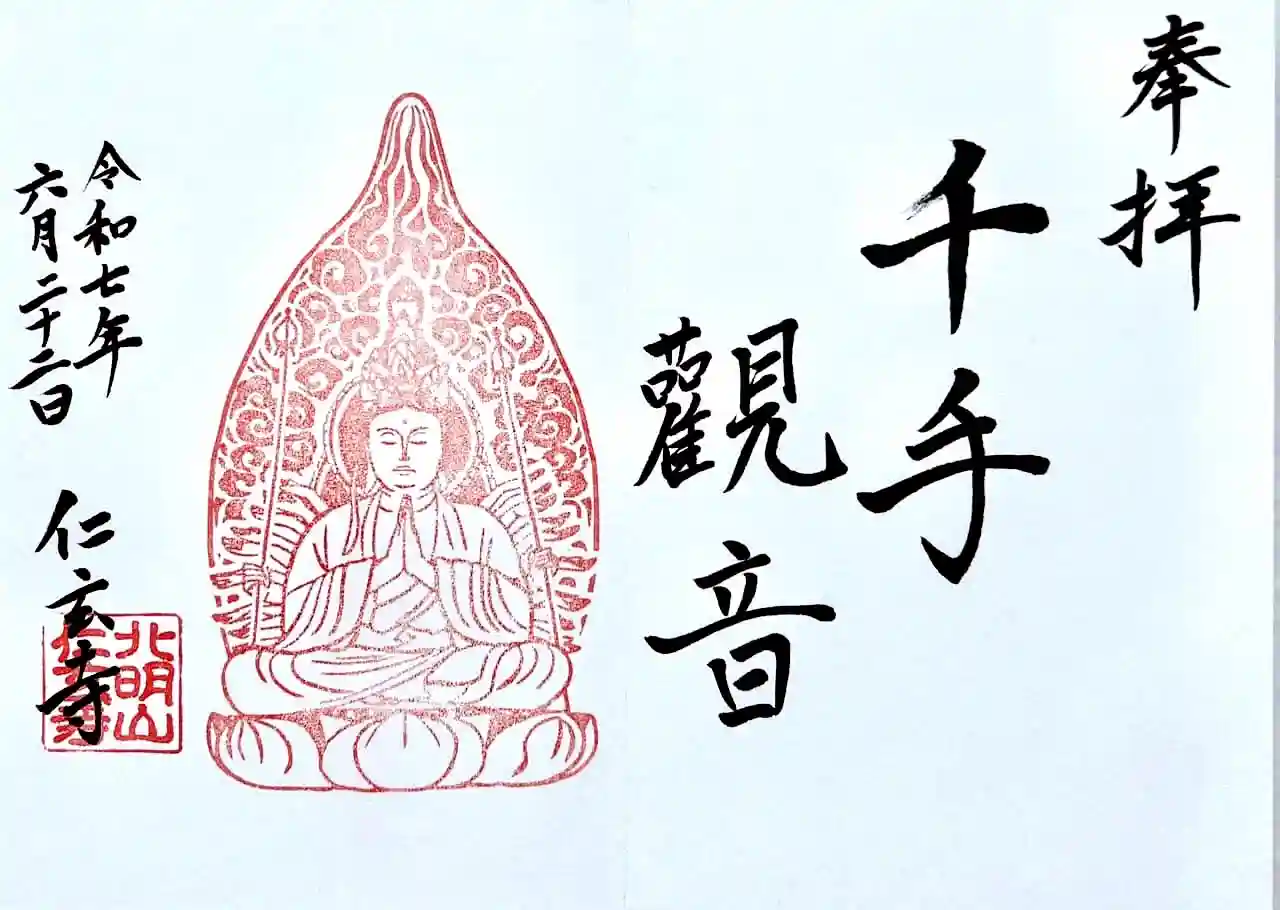 奉拝
千手
觀音
令和七年
六月二十二日
仁玄寺
北明山
仁玄寺